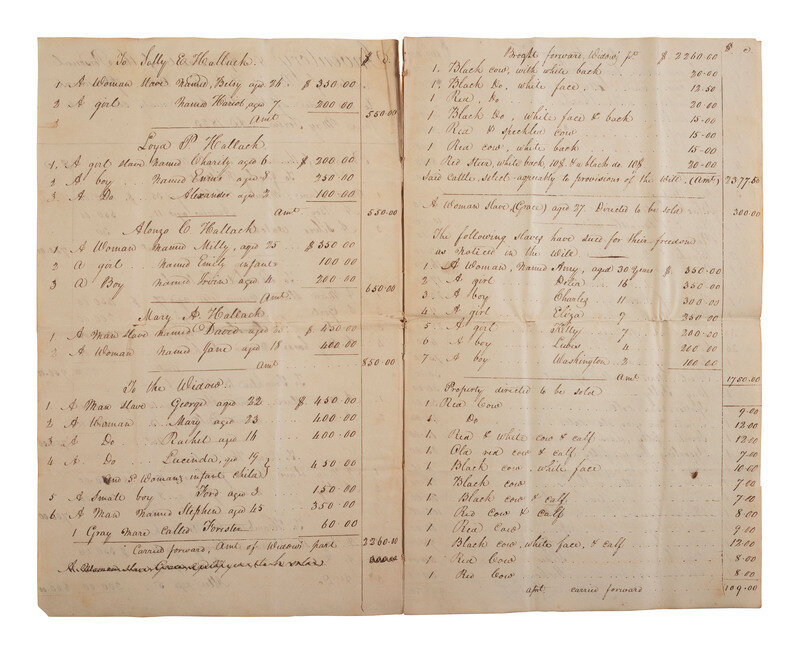 To Sally E Hallack $ c.
1 A Woman Slave Named Betsy aged 24 $ 350.00
2 A girl Named Hariot aged 7 200.00
3 Amt 550.00
Loyd P Hallack
1. A girl Slave named Charity aged 6 $ 200.00
2 A boy Named aged 250.00
3 A Do Alexander aged 2 100.00
Amt 550.00
Alonzo C Hallack
1 A Woman Named Milly, aged 25 $ 350.00
2 A girl named Emily infant 100.00
3 A Boy Named aged 4 200.00
Amt 650.00
Mary A. Hallack
1 A Man Slave named David aged $ 450.00
2 A Woman Named Jane aged 18 400.00
Amt 850.00
To the Widow.
1 A Man Slave George aged 22 $ 450.00
2 A Woman Mary aged 23 400.00
3 A Do Rachel aged 14 400.00
4 A Do Lucinda, age 19
and 5 Womans infant child 450.00
5 A Small boy Ford aged 3 150.00
6 A Man Named Stephen aged 45 350.00
1 Gray mare Called Forester 60.00
Carried forward, Amt of Widows part 2260.00
A Woman Slave Grace
Broght forward, Widows pt $ 2260.00 $ c.
1. Black cow, with white back 20.00
1. Black Do, white face 12.50
1 Red, Do 20.00
1 Black Do, white face & back 15.00
1 Red & speckled cow 15.00
1 Red cow, white back 15.00
1 Red Steer, white back, 10$ & a black do 10$ 20.00
Said Cattle, Select agreeably to provisions of the Will. (Amt) 2377.50
A Woman Slave (Grace) aged 27. Directed to be sold 300.00
The following Slaves have sued for their freedom
as noticed in the Will.
1 A Woman, Named Amy, aged 30 years $ 350.00
2 A girl Delia 16 350.00
3 A boy Charles 11 300.00
4 A girl Eliza 9 250.00
5 A girl Kitty 7 200.00
6 A boy 4 200.00
7 A boy Washington 2 100.00
Amt 1700.00
Property directed to be sold
1 Red Cow 9.00
1. Do 12.00
1 Red & white cow & calf 12.00
1 Old red cow & calf 7.00
1 Black cow, white face 10.00
1 Black cow 7.00
1 Black cow & calf 7.00
1 Red Cow & calf 8.00
1 Red Cow 9.00
1 Black cow, white face, & calf 12.00
1 Red Cow 8.00
1 Red Cow 8.00
carried forward 109.00